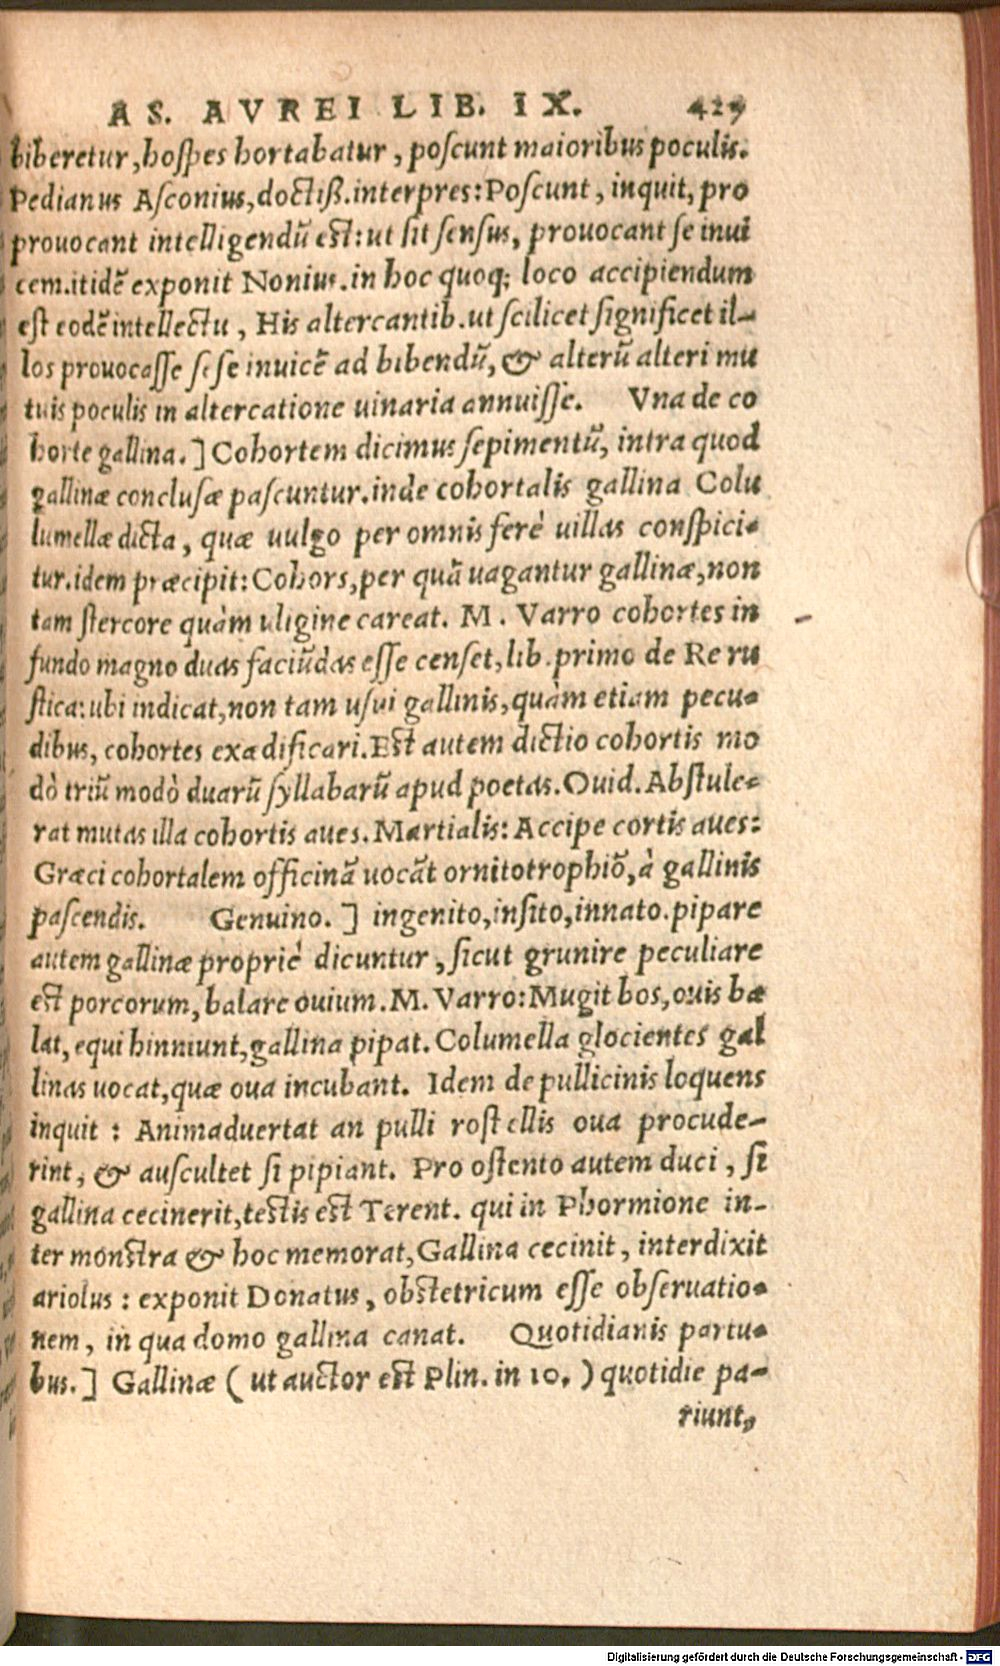 AS. AVREI LIB. IX. 429
biberetur, hospes hortabatur, poscunt maioribus poculis.
Pedianus Asconius, doctiß. interpres: Poscunt, inquit, pro
prouocant intelligendũ est: ut sit sensus, prouocant se inui
cem. itidẽ exponit Nonius. in hoc quoq; loco accipiendum
est eodẽ intellectu, His altercantib. ut scilicet significet il-
los prouocasse sese inuicẽ ad bibendũ, & alterũ alteri mu
tuis poculis in altercatione uinaria annuisse. Vna de co
horte gallina.] Cohortem dicimus sepimentũ, intra quod
gallinæ conclusæ pascuntur. inde cohortalis gallina Colu
lumellæ dicta, quæ uulgo per omnis ferè uillas conspici-
tur. idem præcipit: Cohors, per quã uagantur gallinæ, non
tam stercore quàm uligine careat. M. Varro cohortes in
fundo magno duas faciũdas esse censet, lib. primo de Re ru
stica: ubi indicat, non tam usui gallinis, quàm etiam pecu-
dibus, cohortes exædificari. Est autem dictio cohortis mo
dò triũ modò duarũ syllabarũ apud poetas. Ouid. Abstule-
rat mutas illa cohortis aues. Martialis: Accipe cortis aues:
Græci cohortalem officinã uocãt ornitotrophiõ, à gallinis
pascendis. Genuino.] ingenito, insito, innato. pipare
autem gallinæ propriè dicuntur, sicut grunire peculiare
est porcorum, balare ouium. M. Varro: Mugit bos, ouis bæ
lat, equi hinniunt, gallina pipat. Columella glocientes gal
linas uocat, quæ oua incubant. Idem de pullicinis loquens
inquit: Animaduertat an pulli rostellis oua procude-
rint, & auscultet si pipiant. Pro ostento autem duci, si
gallina cecinerit, testis est Terent. qui in Phormione in-
ter monstra & hoc memorat, Gallina cecinit, interdixit
ariolus: exponit Donatus, obstetricum esse obseruatio-
nem, in qua domo gallina canat. Quotidianis partu-
bus.] Gallinæ (ut auctor est Plin. in 10.) quotidie pa-
riunt,
Digitalisierung gefördert durch die Deutsche Forschungsgemeinschaft - DFG